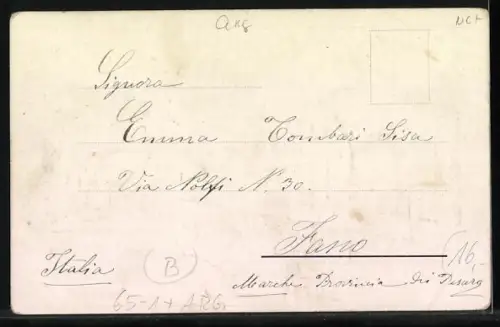 Arg
Signora
Emma Tombari Sisa
Via Nolfi N. 30.
Fano
Italia
Marche Provincia di Pesaro
B
16,-
65-1+ ARG.